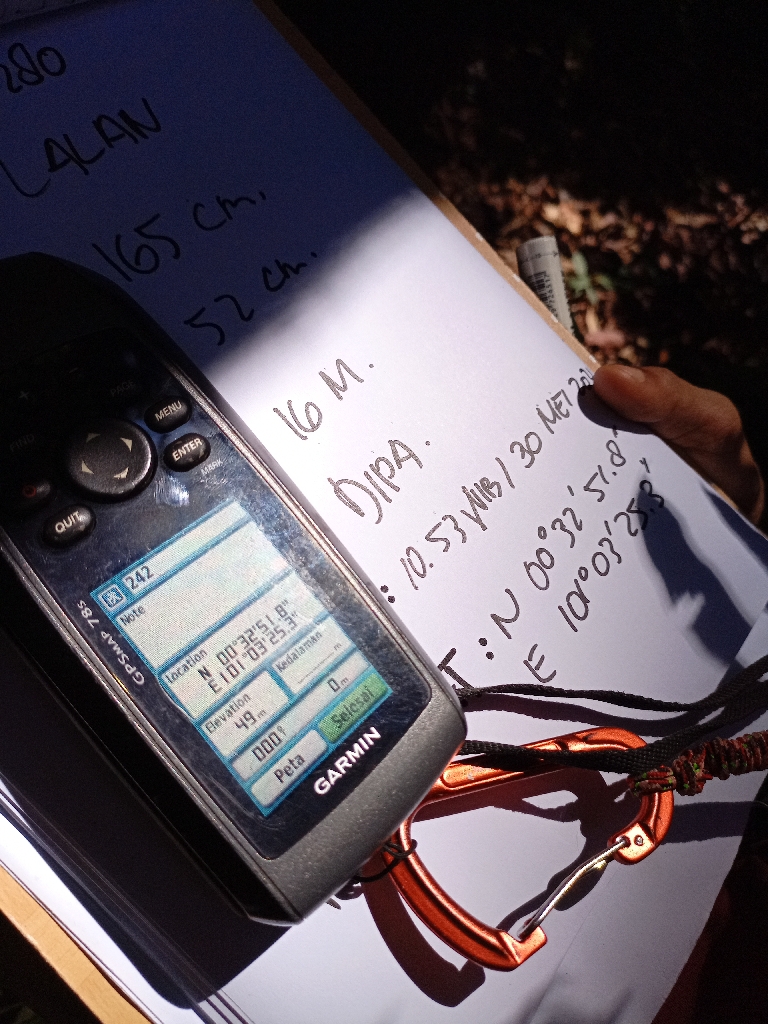 280
LALAN
165 cm.
52 cm.
16 M.
DIPA.
: 10.53 WIB / 30 MEI 20
T : N 00°32'51.8"
E 101°03'25.3"
PAGE
FIND
MENU
ENTER
MARK
QUIT
GPSMAP 78s
242
Note
Location
N 00°32'51.8"
E101°03'25.3"
Elevation
49 m
Kedalaman
_____ m
000°
0 m
Peta
Selesai
GARMIN